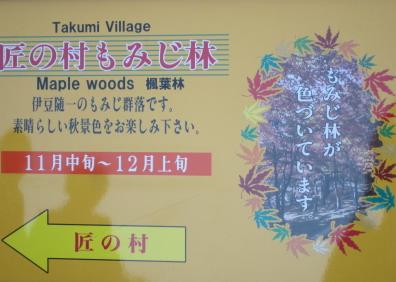 Takumi Village
匠の村もみじ林
Maple woods 楓葉林
伊豆随一のもみじ群落です。
素晴らしい秋景色をお楽しみ下さい。
11月中旬～12月上旬
匠の村
もみじ林が
色づいています